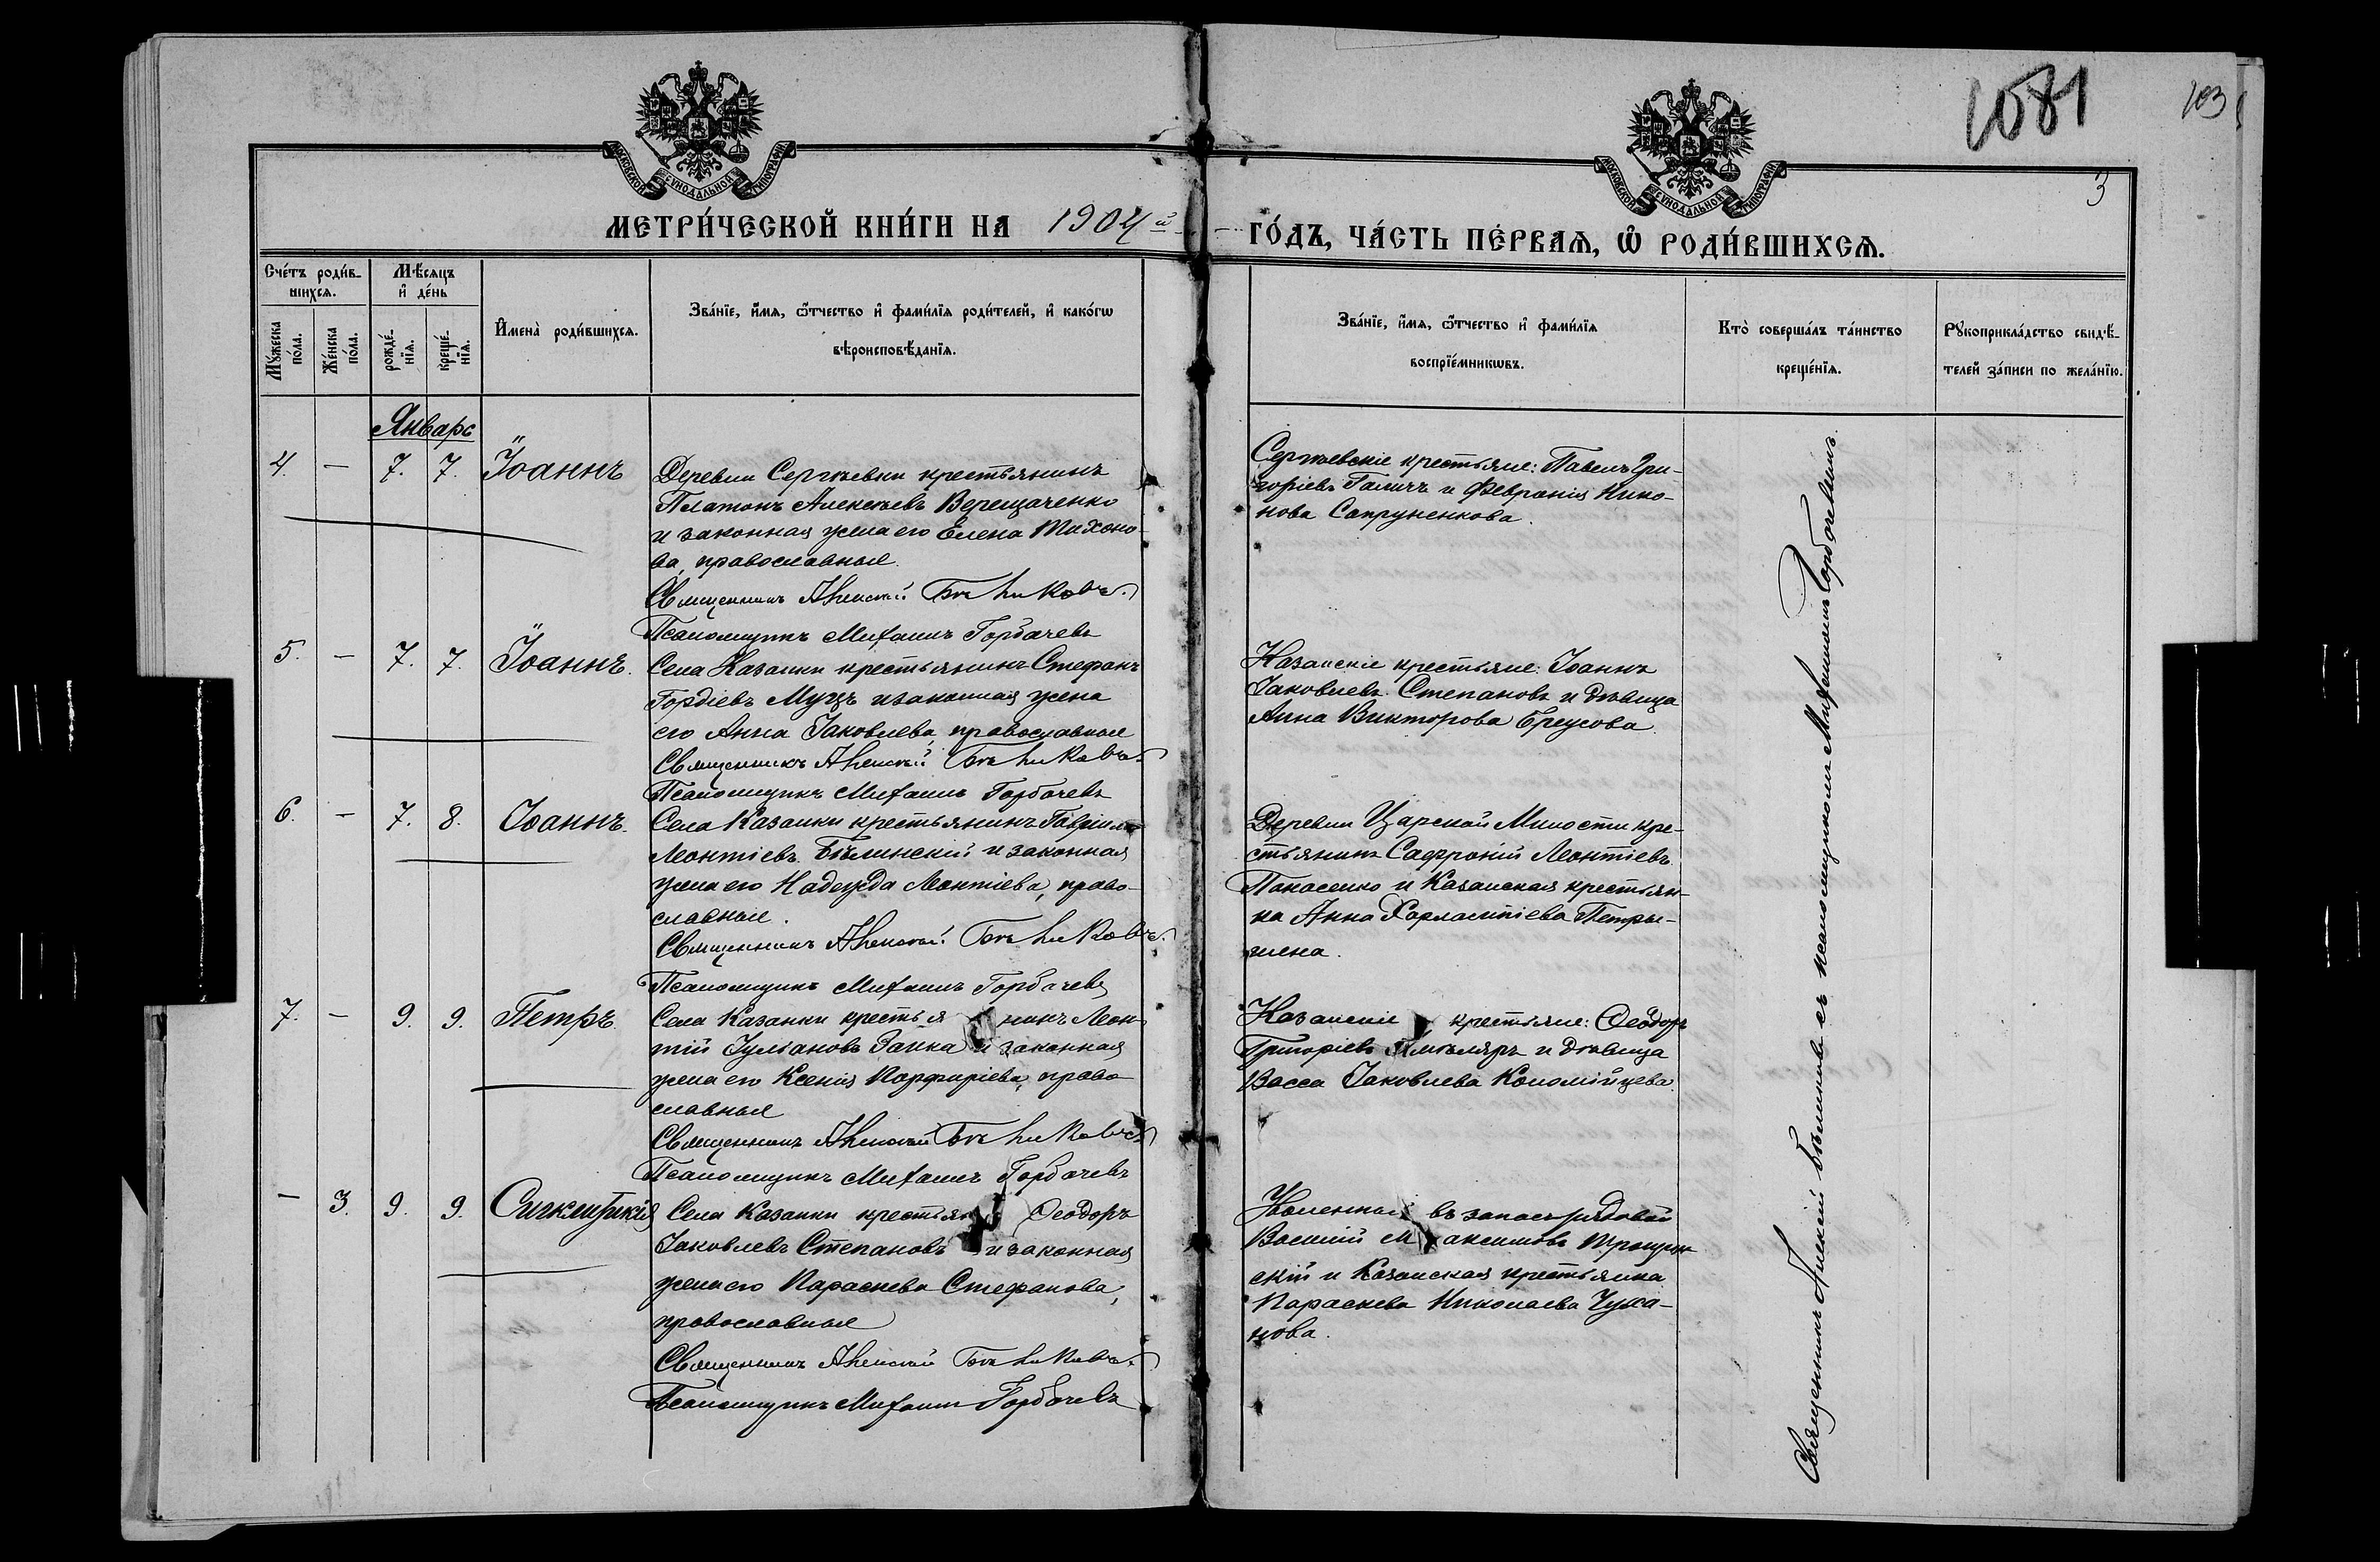 1081
103
3
МОСКОВСКОЙ СУНОДАЛЬНОЙ ТИПОГРАФІИ
МОСКОВСКОЙ СУНОДАЛЬНОЙ ТИПОГРАФІИ
МЕТРИ́ЧЕСКОЙ КНИ́ГИ НА 1904й
ГО́ДЪ, ЧА́СТЬ ПЕ́РВАѦ, Ѡ҆ РОДИ́ВШИХСѦ.
Сче́тъ роди́в-
шихсѧ.
Мѹ́жеска по́ла.
Же́нска по́ла.
Мѣ́сѧцъ
и҆ де́нь
рожде́-
нїѧ.
креще́-
нїѧ.
И҆мена̀ роди́вшихсѧ.
Зва́нїе, и҆́мѧ, ѻ҆́тчество и҆ фами́лїѧ роди́телей, и҆ како́гѡ
вѣроисповѣ́данїѧ.
Зва́нїе, и҆́мѧ, ѻ҆́тчество и҆ фами́лїѧ
воспрїе́мникѡвъ.
Кто̀ соверша́лъ та́инство
креще́нїѧ.
Рѹкоприкла́дство свидѣ́-
телей за́писи по жела́нїю.
Январь
4 — 7. 7. Іоаннъ
Деревни Сергѣевки крестьянинъ
Платонъ Алексѣевъ Верещаченко
и законная жена его Елена Тихоно-
ва, православные.
Священникъ Алексій Бѣликовъ.
Псаломщикъ Михаилъ Горбачевъ
Сергѣевскіе крестьяне: Павелъ Гри-
горіевъ Галичъ и Февронія Нико-
нова Сапруненкова.
5. — 7. 7. Іоаннъ.
Села Казанки крестьянинъ Стефанъ
Гордіевъ Муцъ и законная жена
его Анна Іаковлева, православные
Священникъ Алексій Бѣликовъ.
Псаломщикъ Михаилъ Горбачевъ
Казанскіе крестьяне: Іоаннъ
Іаковлевъ Степановъ и дѣвица
Анна Викторова Бреусова.
6. — 7. 8. Іоаннъ.
Села Казанки крестьянинъ Гавріилъ
Леонтіевъ Бѣлинскій и законная
жена его Надежда Леонтіева, право-
славные.
Священникъ Алексій Бѣликовъ.
Псаломщикъ Михаилъ Горбачевъ
Деревни Царской Милости кре-
стьянинъ Сафроній Леонтіевъ
Панасенко и Казанская крестьян-
ка Анна Харлампіева Петры-
шена.
7. — 9. 9. Петръ.
Села Казанки крестьянинъ Леон-
тій Іуліановъ Заика и законная
жена его Ксенія Порфиріева, право-
славные
Священникъ Алексій Бѣликовъ
Псаломщикъ Михаилъ Горбачевъ
Казанскіе крестьяне: Ѳеодоръ
Григоріевъ и дѣвица
Васса Іаковлева Коломійцева.
— 3. 9. 9. Сигклитикія
Села Казанки крестьян. Ѳеодоръ
Іаковлевъ Степановъ и законная
жена его Параскева Стефанова,
православные
Священникъ Алексій Бѣликовъ.
Псаломщикъ Михаилъ Горбачевъ
Уволенный въ запасъ рядовой
Василій Максимовъ Трощин-
скій и Казанская крестьянка
Параскева Николаева Чука-
нова.
Священникъ Алексій Бѣликовъ съ псаломщикомъ Михаиломъ Горбачевымъ.